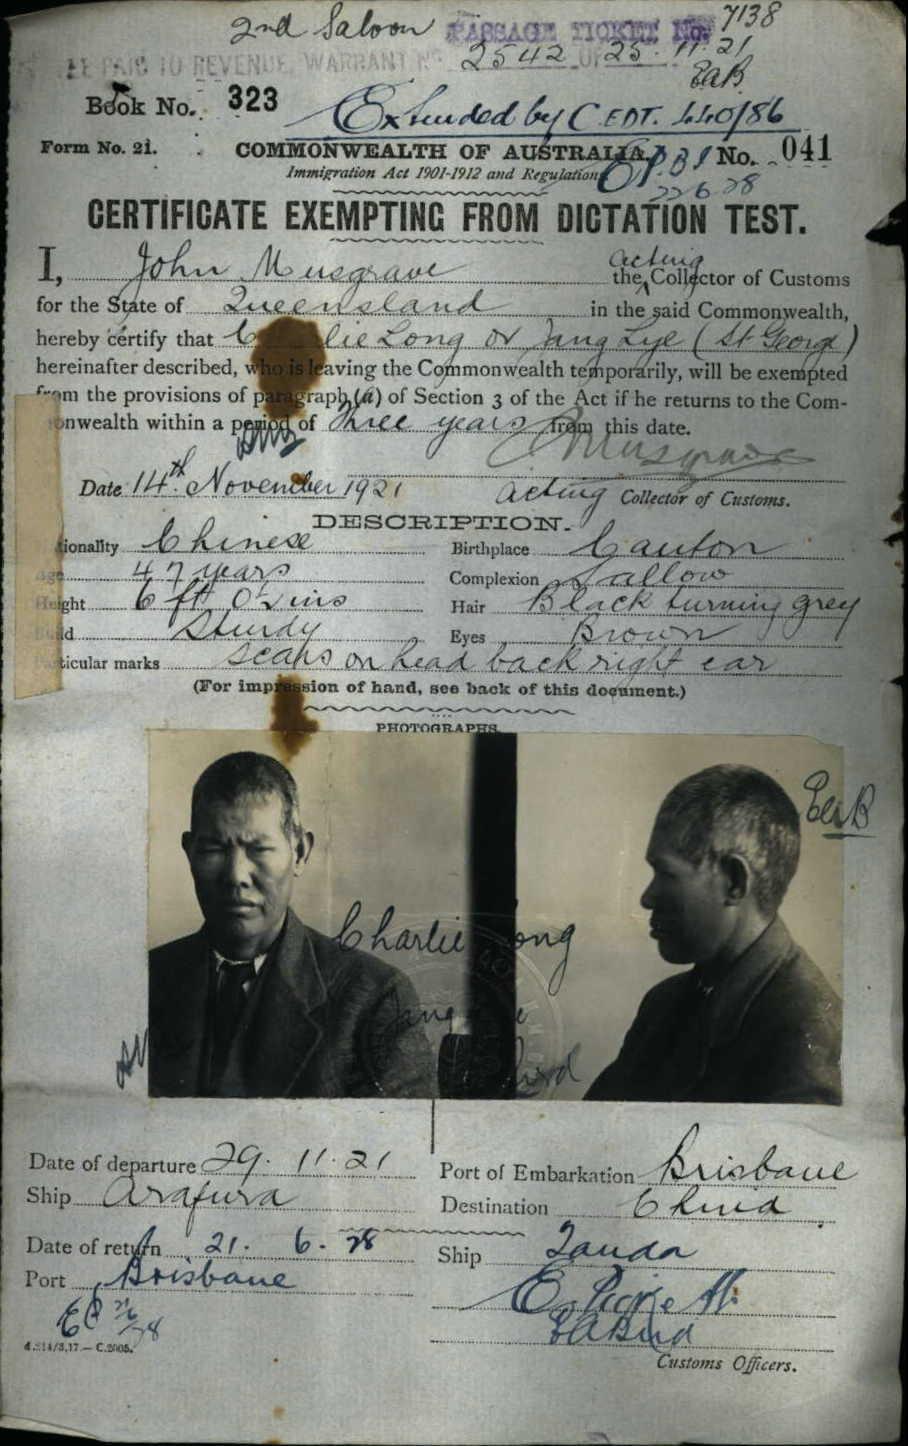 2nd Saloon PASSAGE TICKET No. 7138
BE PAID TO REVENUE, WARRANT No 2542 OF 25.11.21
EaB
Book No. 323
Extended by C.EDT. 440/86
Form No. 21. COMMONWEALTH OF AUSTRALIA. No. 041
Immigration Act 1901-1912 and Regulations
22.6.28
CERTIFICATE EXEMPTING FROM DICTATION TEST.
I, John Musgrave the acting Collector of Customs
for the State of Queensland in the said Commonwealth,
hereby certify that Charlie Long or Jang Lye (St George)
hereinafter described, who is leaving the Commonwealth temporarily, will be exempted
from the provisions of paragraph (a) of Section 3 of the Act if he returns to the Com-
onwealth within a period of Three years from this date.
J Musgrave
Date 14th November 1921 acting Collector of Customs.
DESCRIPTION.
tionality Chinese Birthplace Canton
Age 47 years Complexion Sallow
Height 6 ft 0½ ins Hair Black turning grey
Build Sturdy Eyes Brown
Particular marks scars on head back right ear
(For impression of hand, see back of this document.)
PHOTOGRAPHS.
EaB
Charlie Long
Jang
Date of departure 29.11.21 Port of Embarkation Brisbane
Ship Arafura Destination China
Date of return 21.6.28 Ship Tanda
Port Brisbane
EABird
Customs Officers.